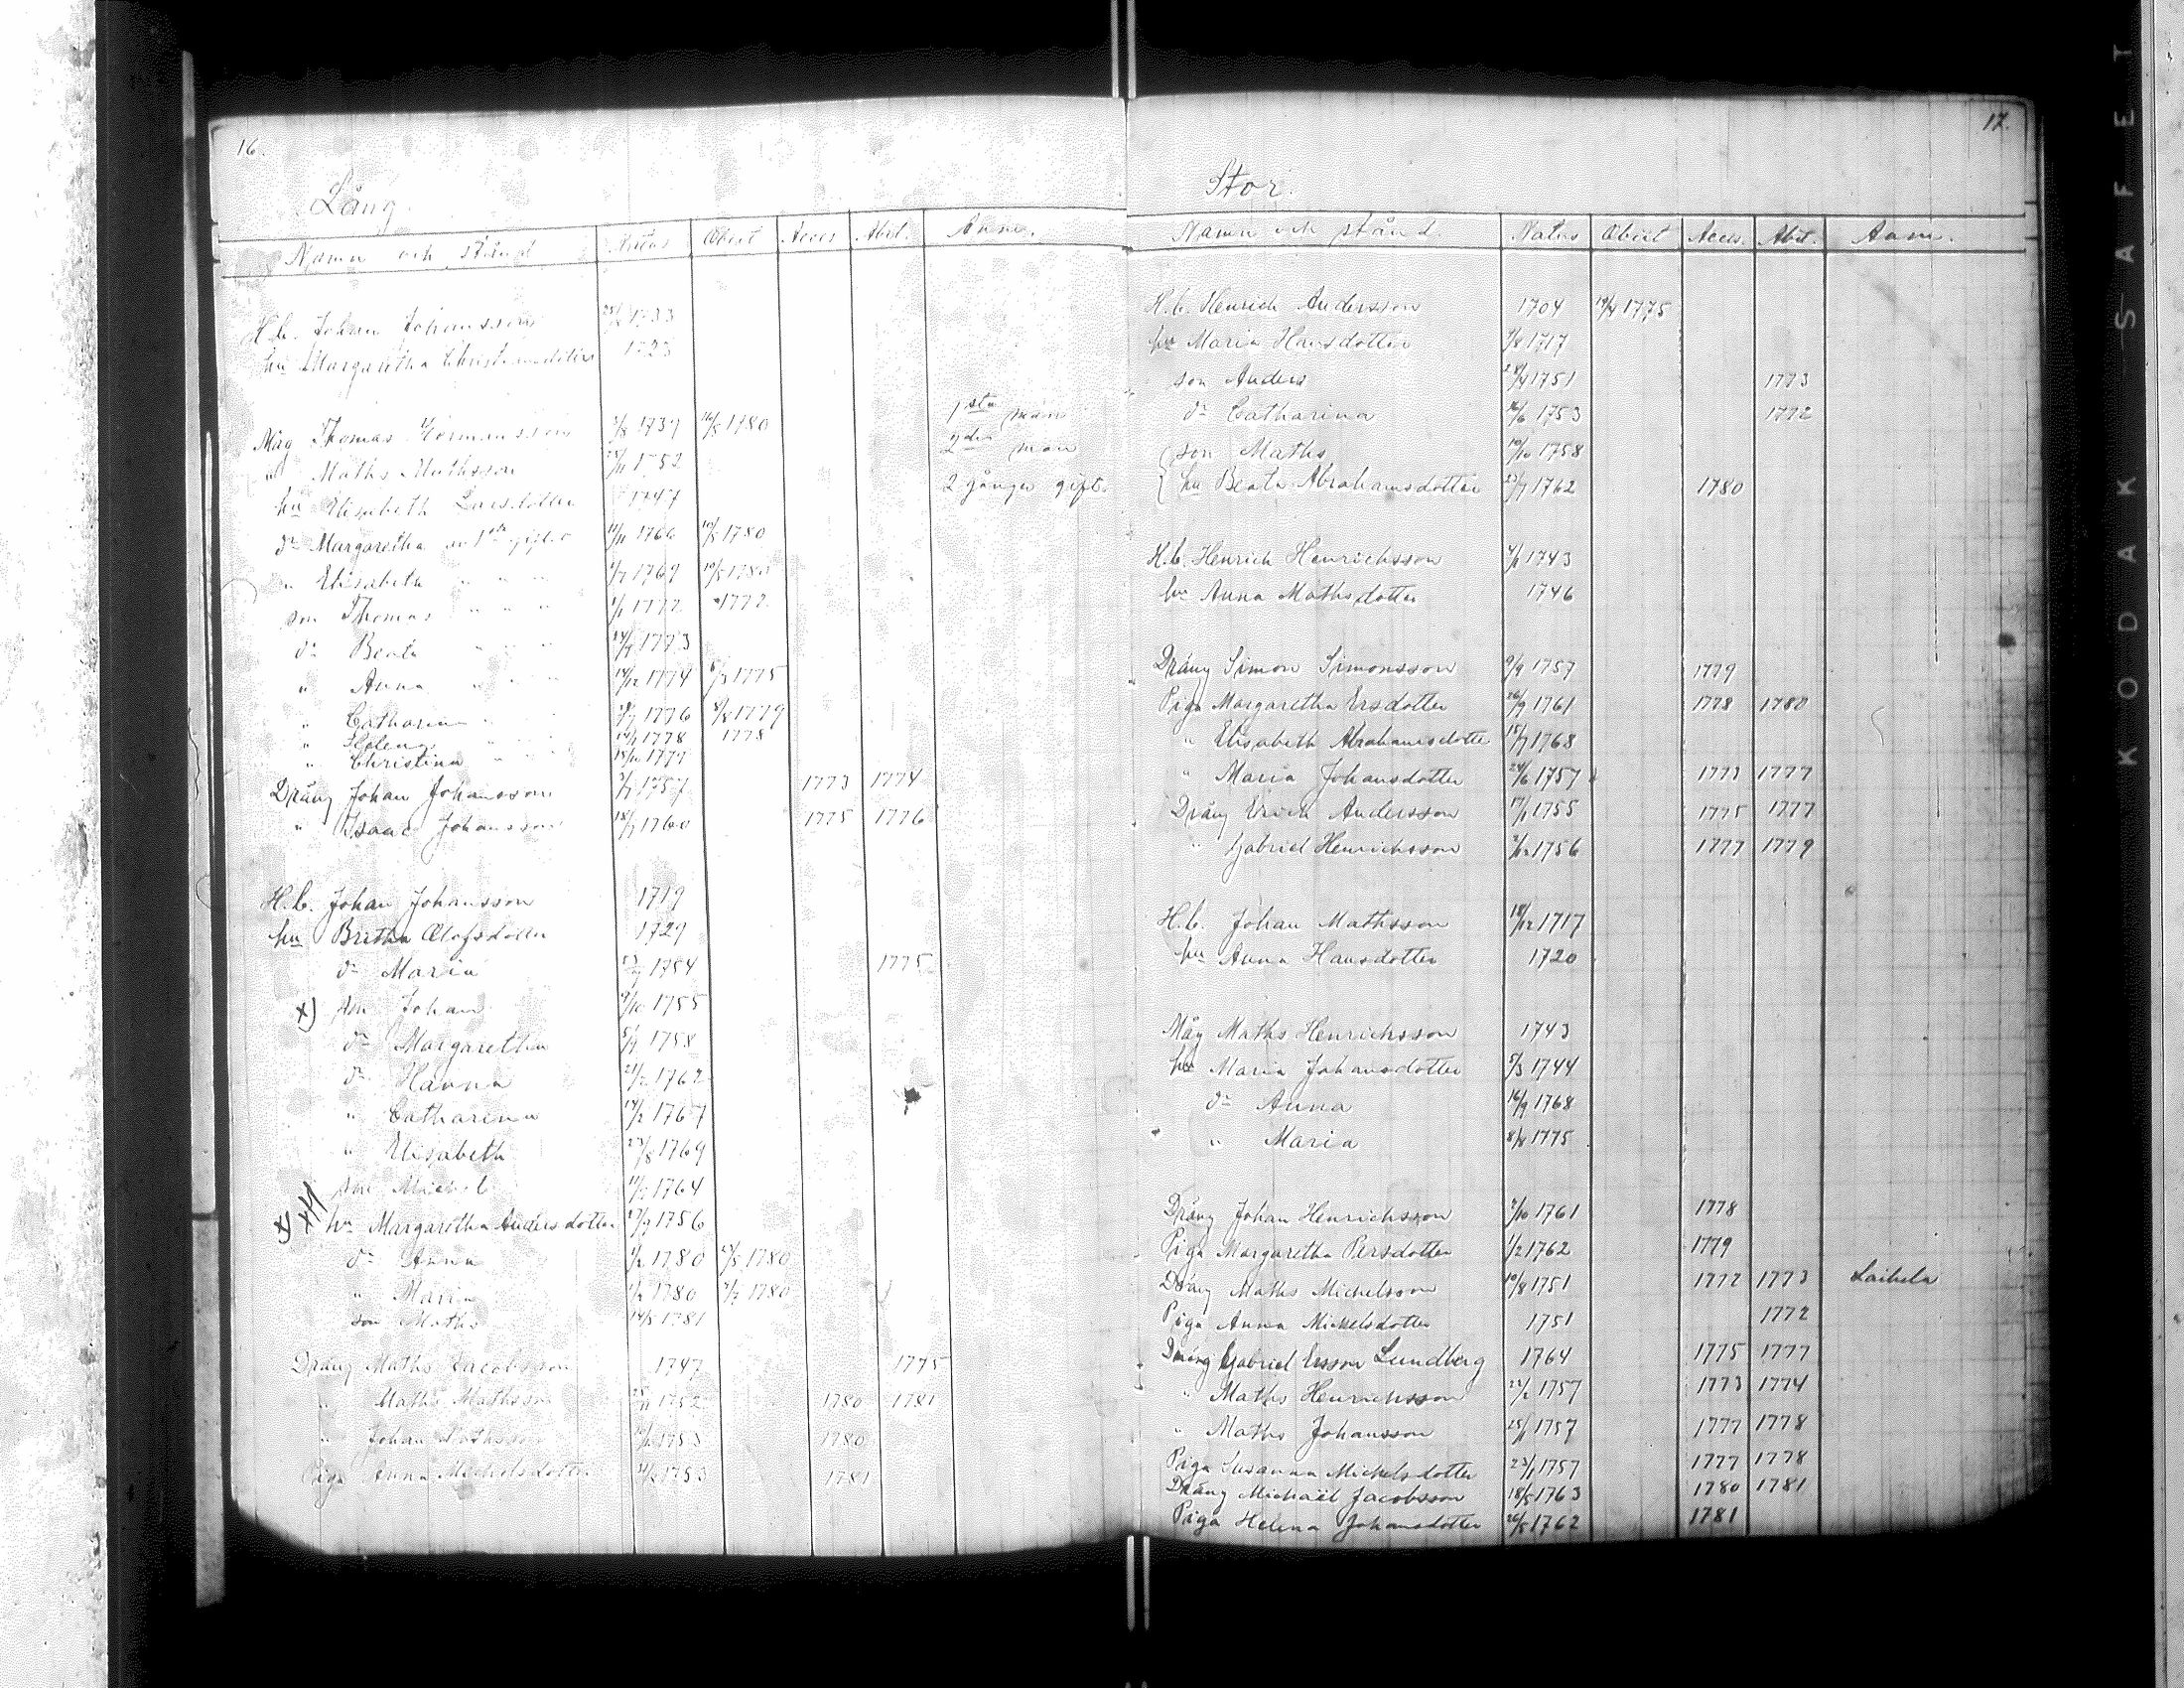 16.
Lång.
Namn och stånd Natus Obiit Acces Abit. Anm.
H.b. Johan Johansson 1733
hu Margaretha Christiansdotter 1723
1sta man
Måg Thomas Hermansson 1737 1780
2dra man
" Maths Mathsson 25/11 1752
hu Elisabeth Larsdotter 1747 2 gånger gift.
dr Margaretha av 1sta giftet 11/11 1766 10/5 1780
" Elisabeth " " " 1769 10/5 1780
son Thomas " " " 1/1 1772 1772
dr Beata " " " 1773
" Anna " " " 14/12 1774 6/3 1775
" Catharina " " 1776 8/8 1779
" Helena " " 1778 1778
" Christina " " 1779
Dräng Johan Johansson 1757 1773 1774
" Isaac Johansson 1760 1775 1776
H.b. Johan Johansson 1719
hu Britha Olofsdotter 1729
dr Maria 1754 1775
x) son Johan 9/10 1755
dr Margaretha 1758
dr Hanna 21/2 1762
" Catharina 14/2 1767
" Elisabeth 23/8 1769
son Michel 1764
x) hu Margaretha Andersdotter 27/9 1756
dr Anna 1/2 1780 1780
" Maria 1/2 1780 1780
son Maths 14/5 1781
Dräng Maths Jacobsson 1747 1775
" Maths Mathsson 25/11 1752 1780 1781
" Johan Mathsson 1753 1780
Piga Anna Michelsdotter 1753 1781
17.
Stor.
Namn och stånd Natus Obiit Acces. Abit. Anm.
H.b. Henrich Andersson 1704 19/4 1775
hu Maria Hansdotter 1717
son Anders 28/4 1751 1773
dr Catharina 1753 1772
son Maths 10/10 1758
hu Beata Abrahamsdotter 23/7 1762 1780
H.b. Henrich Henrichsson 1743
hu Anna Mathsdotter 1746
Dräng Simon Simonsson 9/9 1757 1779
Piga Margaretha Ersdotter 26/9 1761 1778 1780
" Elisabeth Abrahamsdotter 15/7 1768
" Maria Johansdotter 24/6 1757 1773 1777
Dräng Erich Andersson 17/1 1755 1775 1777
" Gabriel Henrichsson 1756 1777 1779
H.b. Johan Mathsson 18/12 1717
hu Anna Hansdotter 1720
Måg Maths Henrichsson 1743
hu Maria Johansdotter 5/3 1744
dr Anna 16/9 1768
" Maria 8/8 1775
Dräng Johan Henrichsson 7/10 1761 1778
Piga Margaretha Persdotter 1/2 1762 1779
Dräng Maths Michelsson 10/8 1751 1772 1773 Laihela
Piga Anna Mickelsdotter 1751 1772
Dräng Gabriel Ersson Lundberg 1764 1775 1777
" Maths Henrichsson 22/2 1757 1773 1774
" Maths Johansson 1757 1777 1778
Piga Susanna Mickelsdotter 23/1 1757 1777 1778
Dräng Michaël Jacobsson 18/5 1763 1780 1781
Piga Helena Johansdotter 26/5 1762 1781
KODAK SAFET